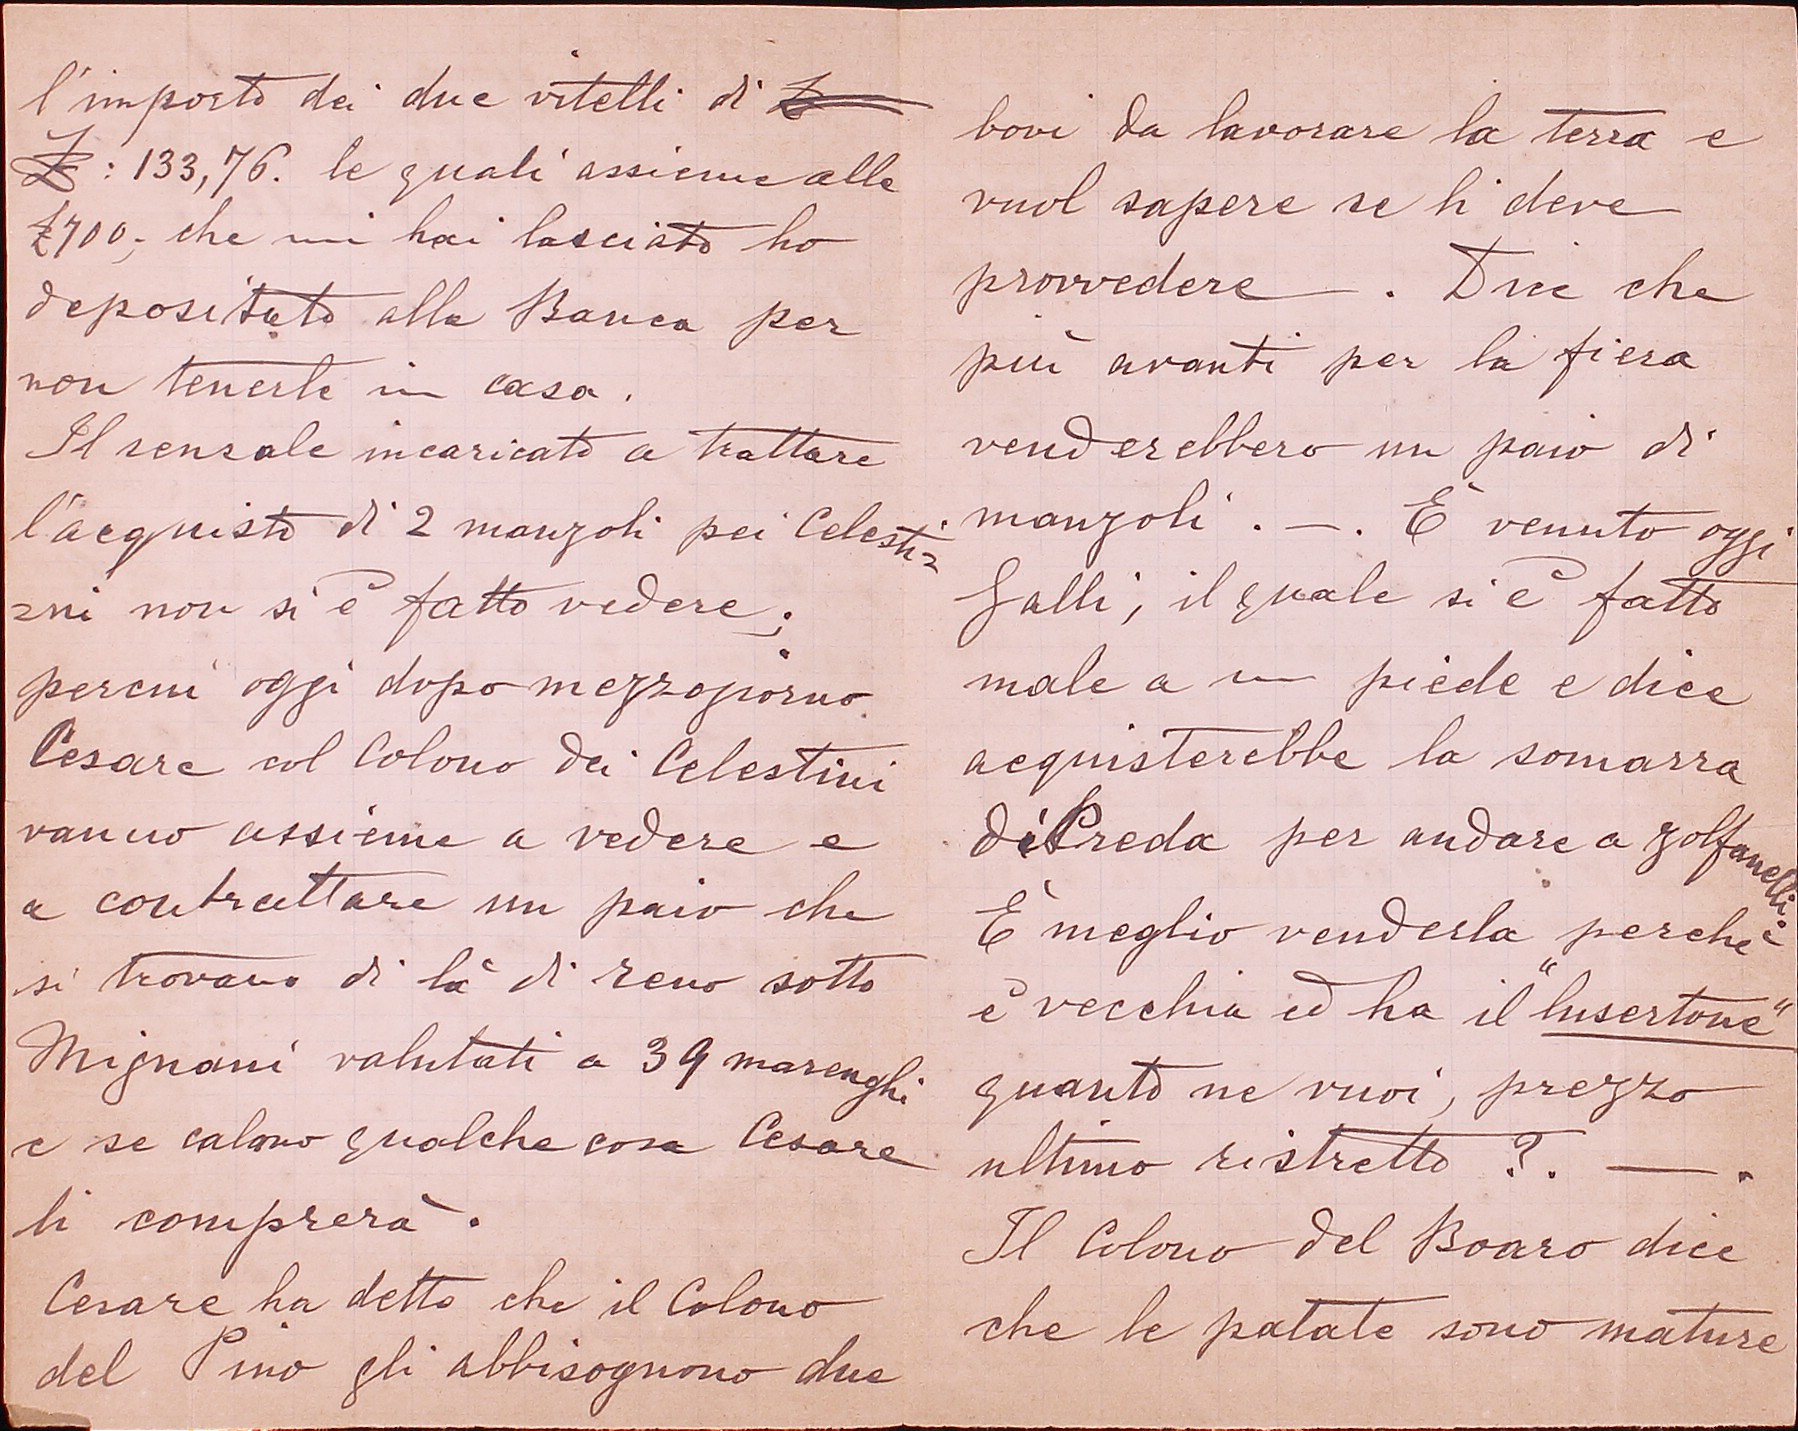 l'importo dei due vitelli di
£: 133,76. le quali assieme alle
£700,- che mi hai lasciato ho
depositato alla Banca per
non tenerle in casa.
Il sensale incaricato a trattare
l'acquisto di 2 manzoli pei Celesti=
=ni non si è fatto vedere;
percui oggi dopo mezzogiorno
Cesare col Colono dei Celestini
vanno assieme a vedere e
a contrattare un paio che
si trovano di là di reno sotto
Mignani valutati a 39 marenghi
e se calano qualche cosa Cesare
li comprerà.
Cesare ha detto che il Colono
del Pino gli abbisognono due
bovi da lavorare la terra e
vuol sapere se li deve
provvedere —. Dice che
più avanti per la fiera
venderebbero un paio di
manzoli. —. È venuto oggi
Galli, il quale si è fatto
male a un piede e dice
acquisterebbe la somarra
di Preda per andare a zolfanelli.
È meglio venderla perchè
è vecchia ed ha il "lusertone"
quanto ne vuoi, prezzo
ultimo ristretto ?. —.
Il Colono del Boaro dice
che le patate sono mature